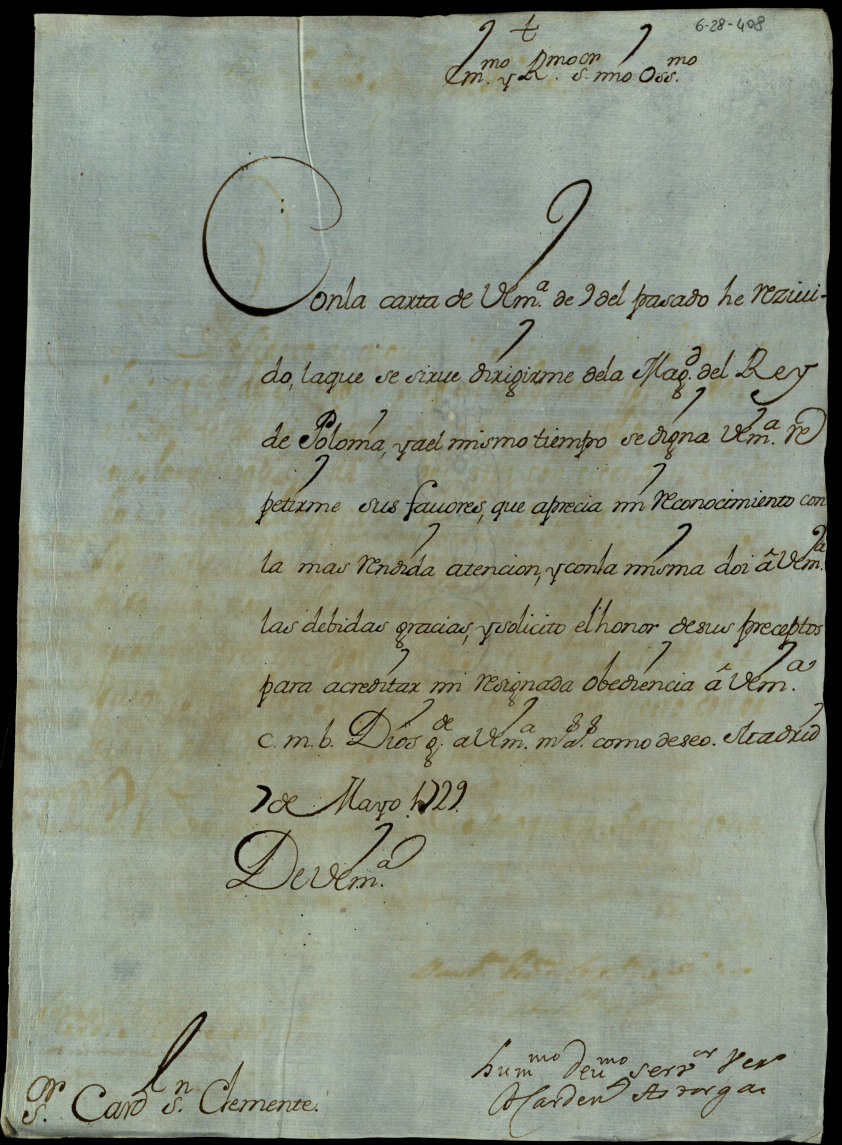 6-28-408
†
Em.mo y R.mo S.or mio Oss.mo
Con la carta de VEm.a de 9 del pasado he reziui-
do, la que se sirue dirigirme de la Mag.d del Rey
de Polonia, y a el mismo tiempo se digna VEm.a re
petirme sus fauores, que aprecia mi reconocimiento con
la mas rendida atencion, y con la misma doi â VEm.a
las debidas gracias, y solicito el honor de sus preceptos
para acreditar mi resignada obediencia â VEm.a
C. m. b. Dios g.de a VEm.a m.s a.s como deseo. Madrid
7 de Mayo 1729.
De VEm.a
hum.mo deu.mo seru.or Ver.o
El Carden.l Astorga
S.or Card.l S.n Clemente.